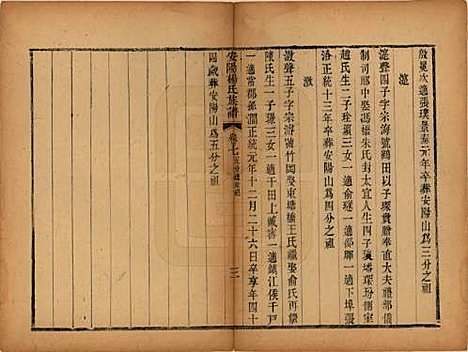 殷晃次適張璞景泰元年卒葬安陽山爲三分之祖
滬
滬聲四子字宗海號鶴田以子琛貴贈奉直大夫禮部儀
制司郎中娶馮橋朱氏封太宜人生四子璞墦琛玢側室
趙氏生二子栓瓚三女一適俞璲一適邵暉一適下埠張
洽正統十三年卒葬安陽山爲四分之祖
澂
澂聲五子字宗游號竹西娶東塘橋王氏禮娶俞氏再續
陳氏生一子璟三女一適干田上臧言一適鎮江侯千戸
一適常郡孫
正統元年十二月二十六日卒享年四十
四歲葬安陽山爲五分之祖
安陽楊氏族譜
卷七
三